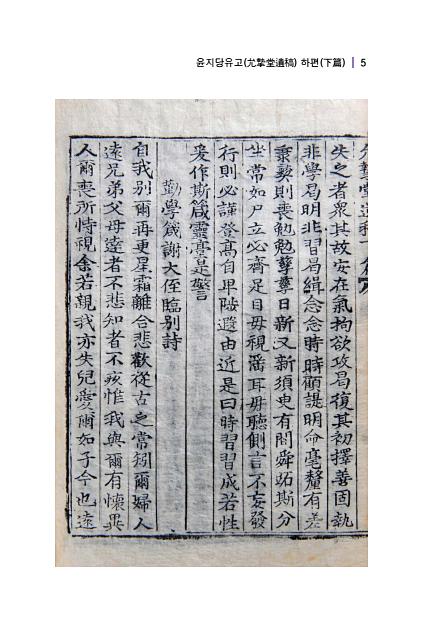 윤지당유고(尤摯堂遺稿) 하편(下篇) | 5
失之者衆其故安在氣拘欲攻曷復其初擇善固執
非學曷明非習曷緝念念時時顧諟明命毫釐有差
秉彛則喪勉勉孶孶日新又新須臾有間舜跖斯分
坐常如尸立必齋足目毋視滛耳毋聽側言不妄發
行則必謹登高自卑陟遐由近是曰時習習成若性
爰作斯箴靈臺是警
勸學箴謝大侄臨别詩
自我别爾再更星霜離合悲歡從古之常矧爾婦人
遠兄弟父母達者不悲知者不疚惟我與爾有懷異
人爾喪所恃視余若親我亦失兒愛爾如子今也遠